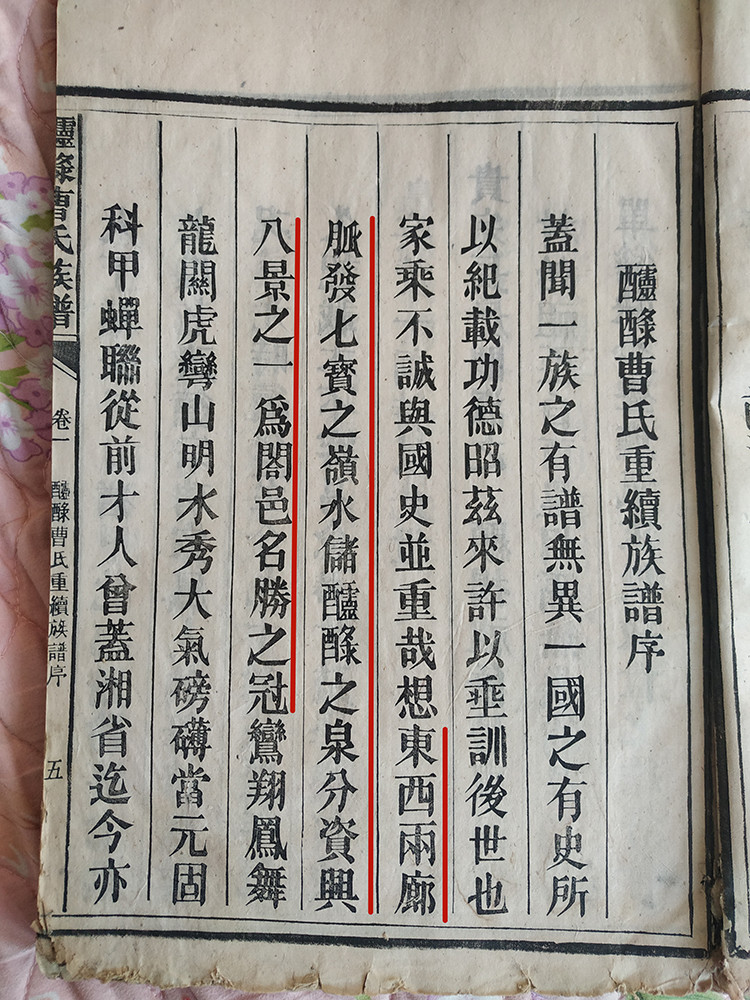 醽醁曹氏重續族譜序
蓋聞一族之有譜無異一國之有史所
以紀載功德昭茲來許以垂訓後世也
家乘不誠與國史並重哉想東西兩廊
脈發七寶之嶺水儲醽醁之泉分資興
八景之一爲閤邑名勝之冠鸞翔鳳舞
龍關虎彎山明水秀大氣磅礴當元固
科甲蟬聯從前才人曾蓋湘省迄今亦
醽醁曹氏族譜
卷一
醽醁曹氏重續族譜序
五